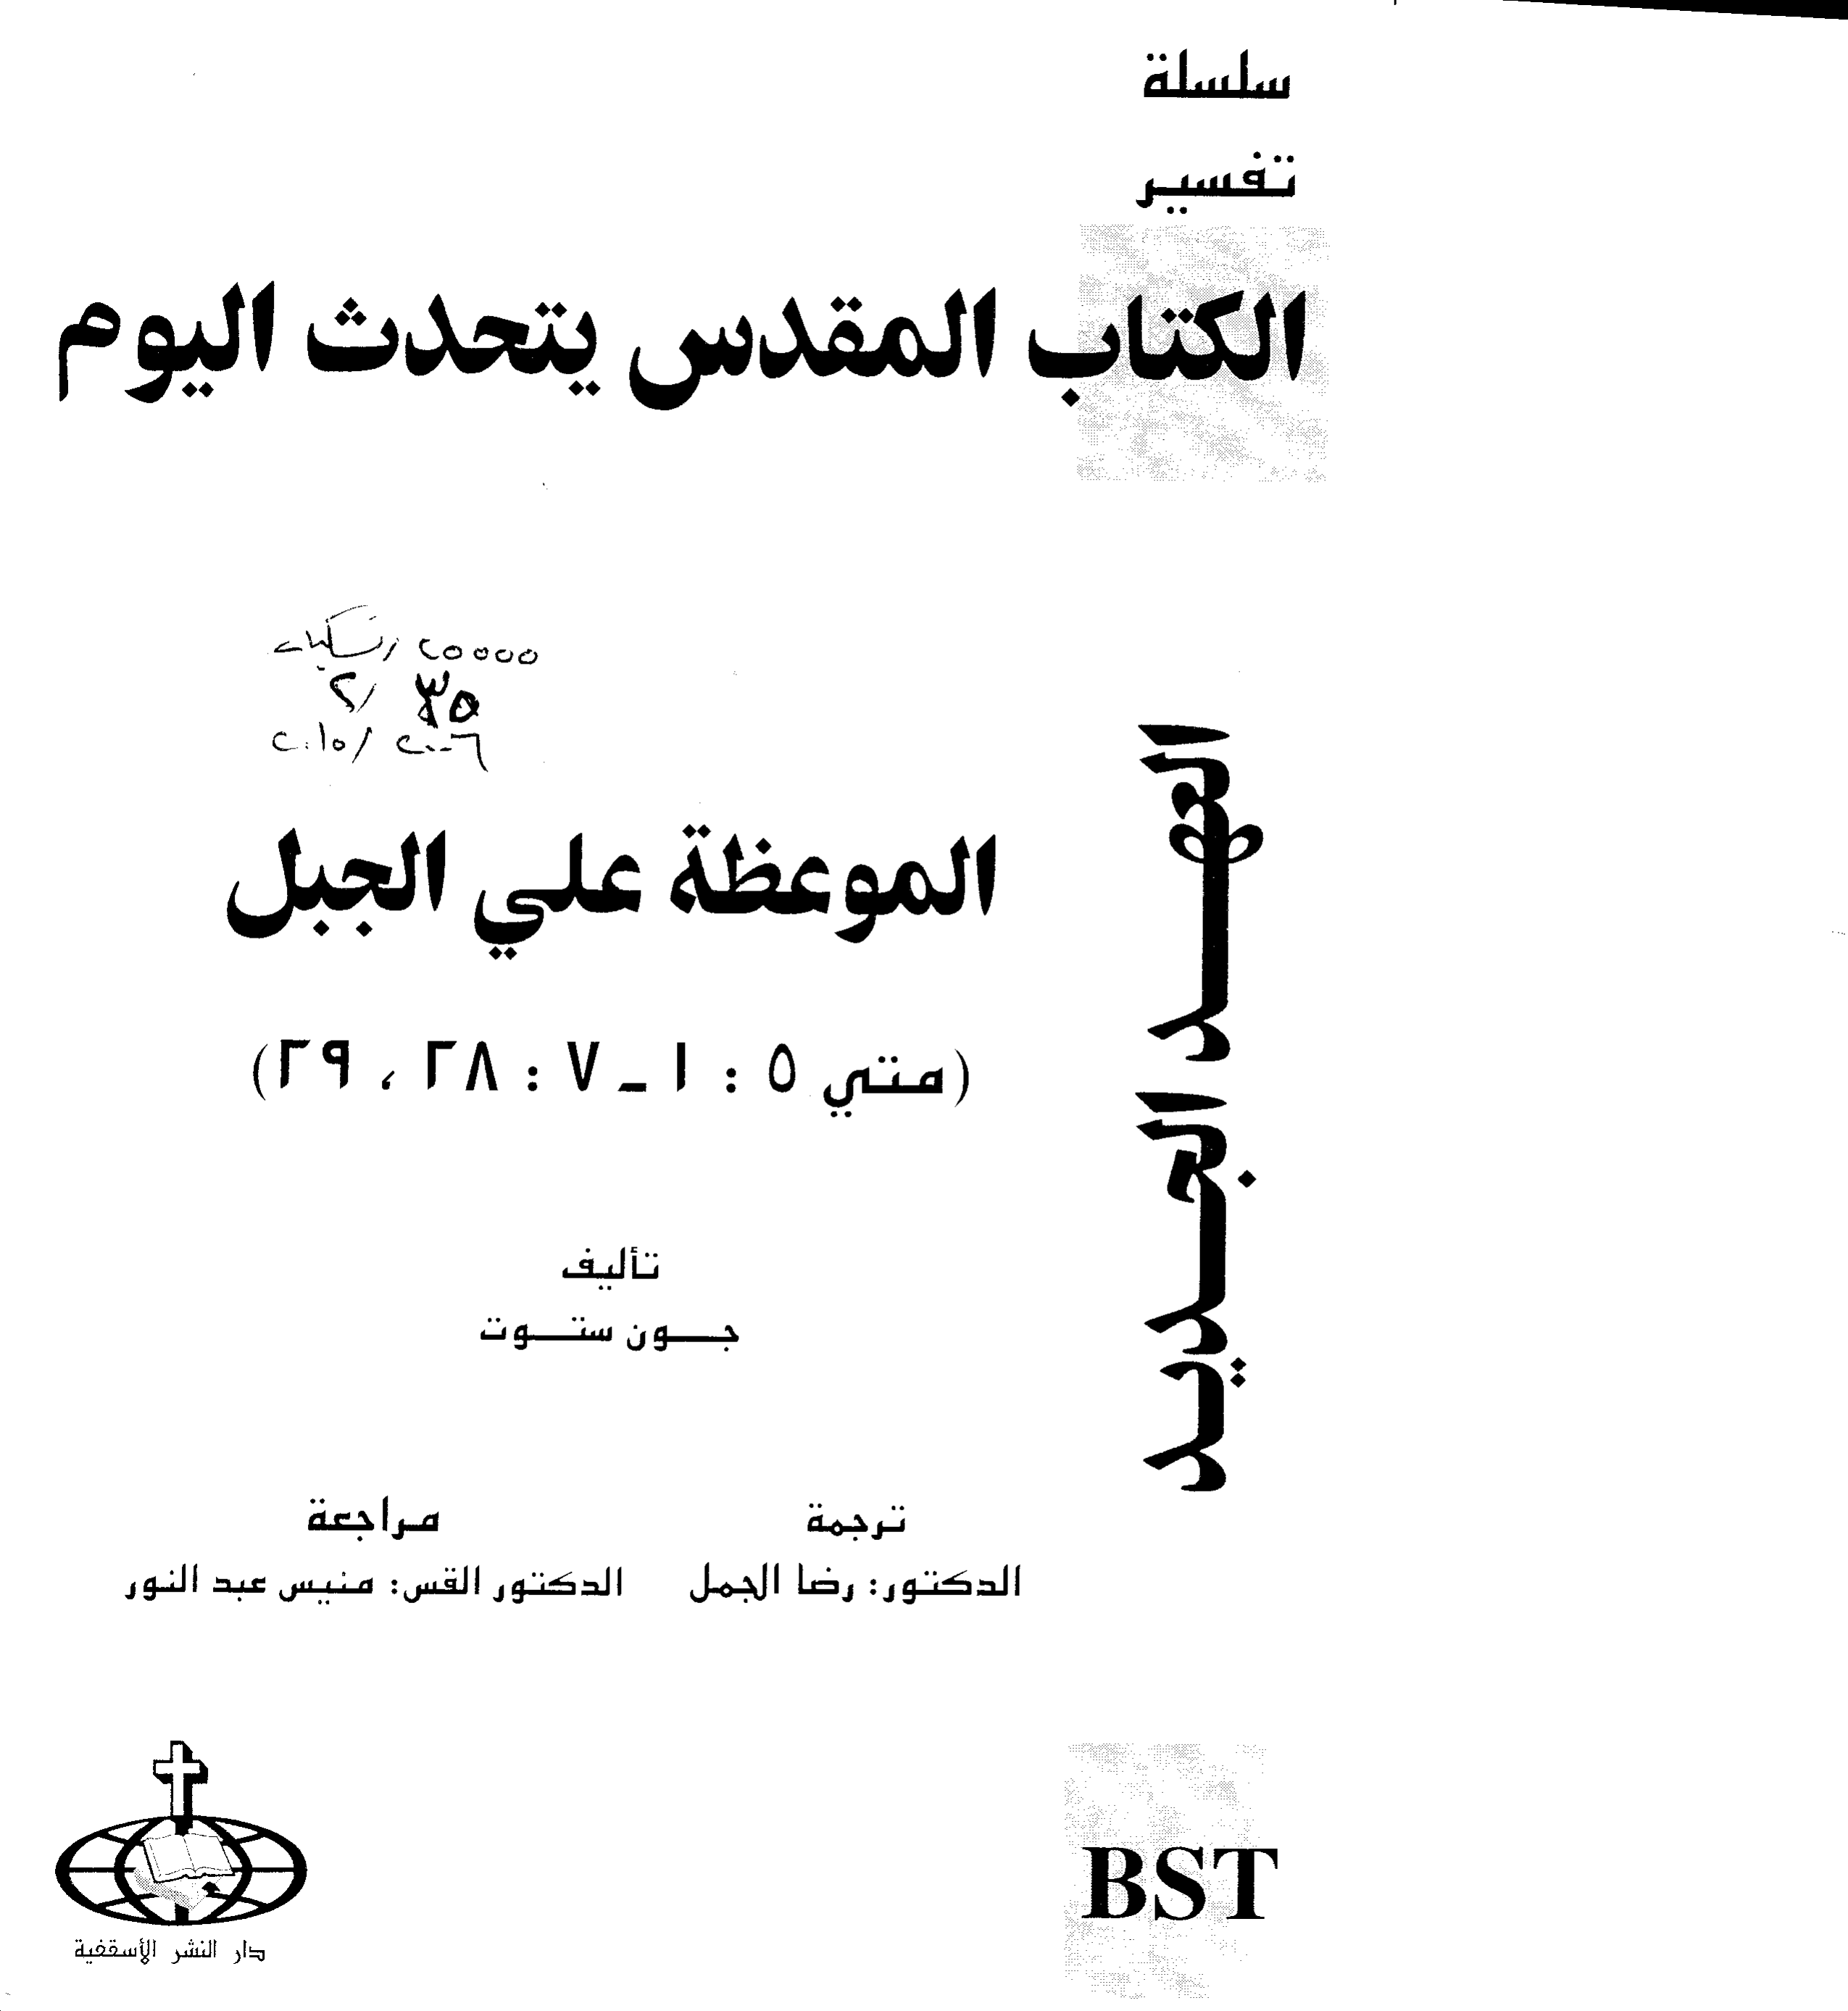 سلسلة
تفسير
الكتاب المقدس يتحدث اليوم
٢٥٠٠٠
٣٥
٢٠١٥/ ٢٠٠٦
العهد الجديد
الموعظة علي الجبل
(متي ٥ : ١ ـ ٧ : ٢٨ ، ٢٩)
تأليف
جـــون ستـــوت
ترجمة
الدكتور: رضا الجمل
مراجعة
الدكتور القس: منيس عبد النور
دار النشر الأسقفية
BST